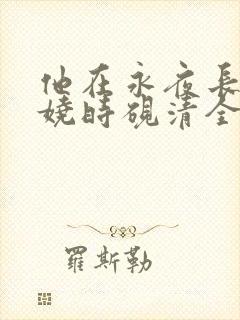 他在永夜長
嬈時硯清全
羅斯勒